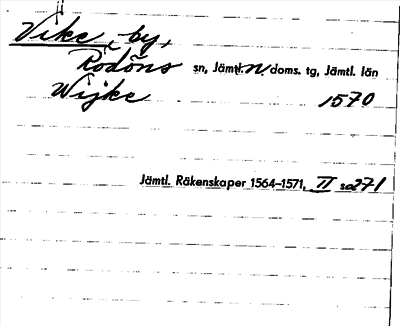 Vike, by,
Rödöns sn, Jämtl. n. doms. tg, Jämtl. län
Wijke 1570
Jämtl. Räkenskaper 1564–1571, II s. 271